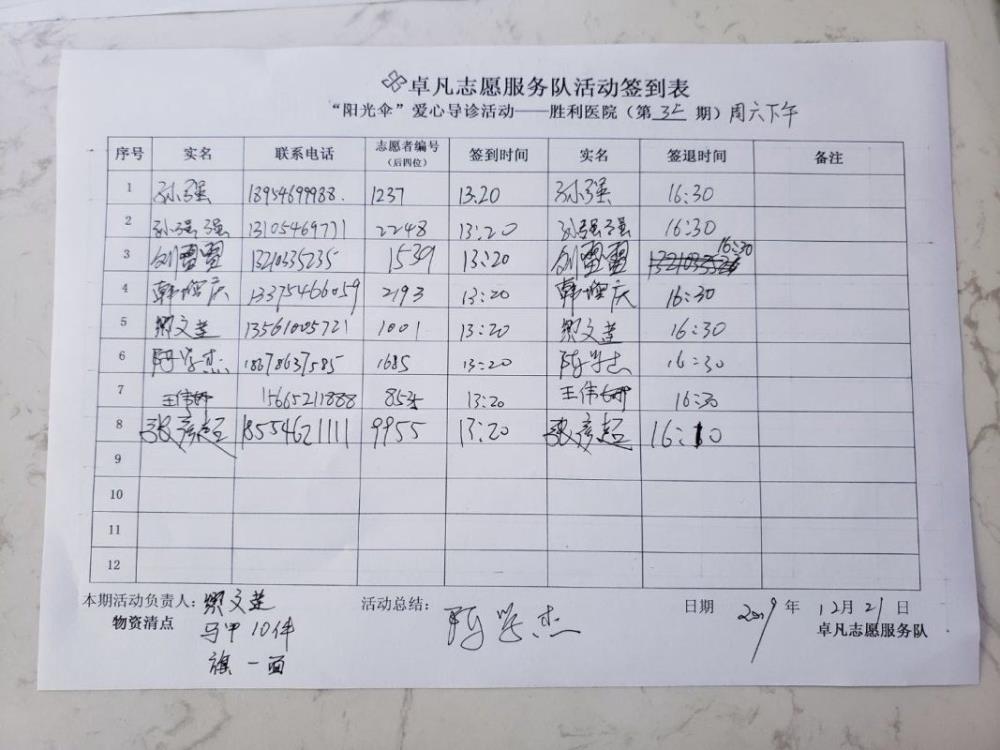 卓凡志愿服务队活动签到表
“阳光伞”爱心导诊活动——胜利医院（第 期）周六下午
序号 实名 联系电话 志愿者编号（后四位） 签到时间 实名 签退时间 备注
1 孙强 18954699988. 1237 13:20 孙强 16:30
2 孙强强 13105469771 2248 13:20 孙强强 16:30
3 刘雷雷 13210335235 1539 13:20 刘雷雷 16:30
4 韩 庆 13375466059 2193 13:20 韩 庆 16:30
5 文 13561005721 1001 13:20 文 16:30
6 学杰 18678637585 1685 13:20 学杰 16:30
7 王伟 15665211888 13:20 王伟 16:30
8 张彦超 18554621111 9955 13:20 张彦超 16:10
9
10
11
12
本期活动负责人： 文 活动总结： 学杰 日期 2019 年 12月21日
物资清点 马甲10件 卓凡志愿服务队
旗一面